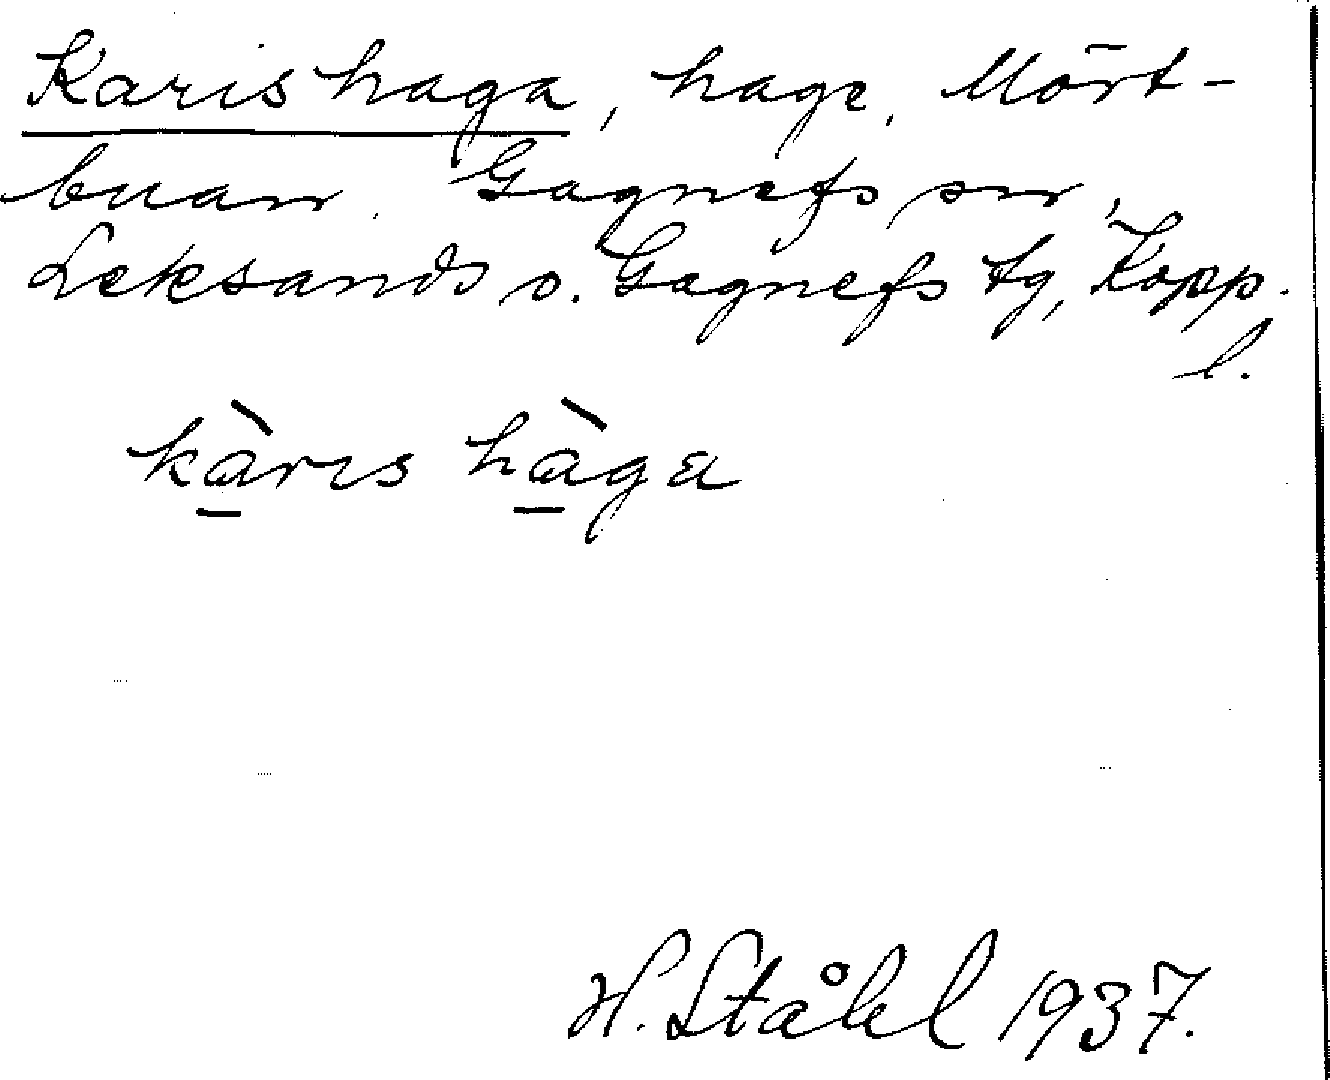 Karishaga, hage, Mört-
buan. Gagnefs sn,
Leksands o. Gagnefs tg, Kopp.
l.
kàris hàga
H. Ståhl 1937.